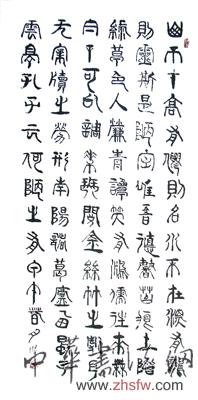 山不在高有僊則名水不在深有龍
則靈斯是陋室惟吾德馨苔痕上階
綠草色入簾青談笑有鴻儒往來無
白丁可以調素琴閱金絲竹之亂耳
无案牘之勞形南陽諸葛廬西蜀子
雲亭孔子云何陋之有
中華書法网
www.zhsfw.com